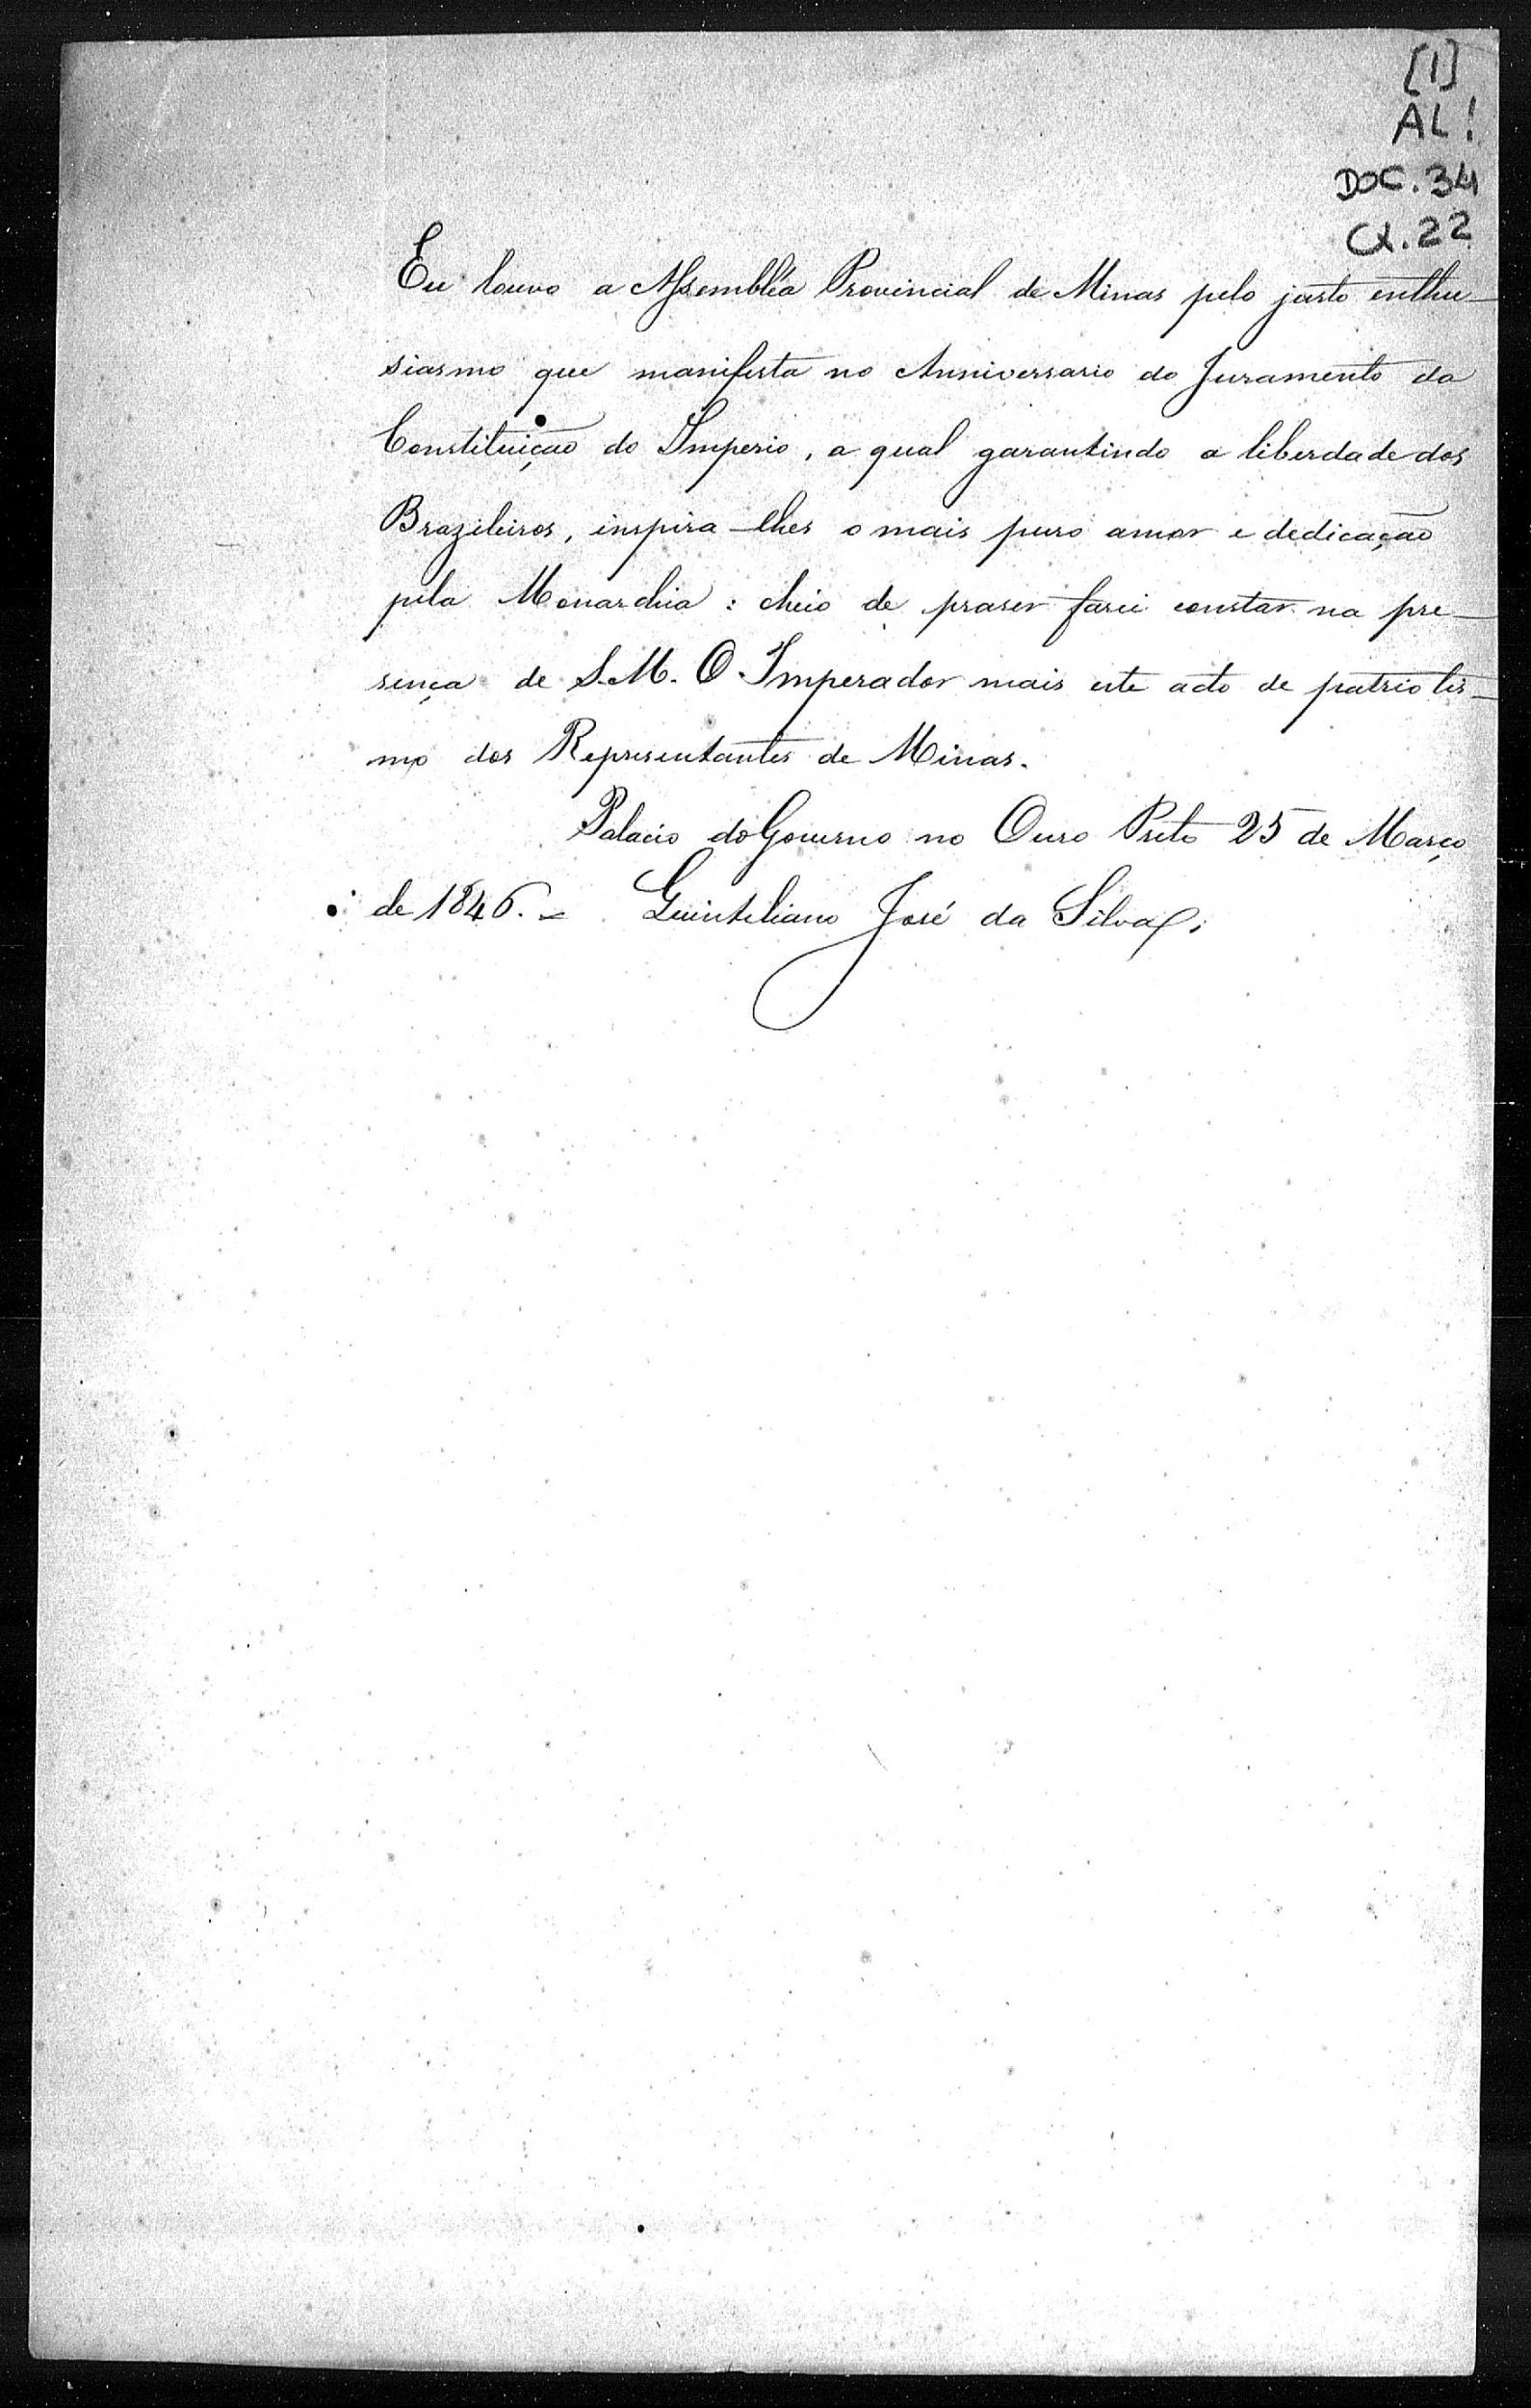 [1]
AL!
DOC. 34
CX. 22
Eu louvo a Assembléa Provincial de Minas pelo justo enthu-
siasmo que manifesta no Anniversario do Juramento da
Constituição do Imperio, a qual garantindo a liberdade dos
Brazileiros, inspira-lhes o mais puro amor e dedicação
pela Monarchia: cheio de praser farei constar na pre-
sença de S. M. O Imperador mais este acto de patriotis-
mo dos Representantes de Minas.
Palacio do Governo no Ouro Preto 25 de Março
de 1846. = Quintiliano José da Silva.